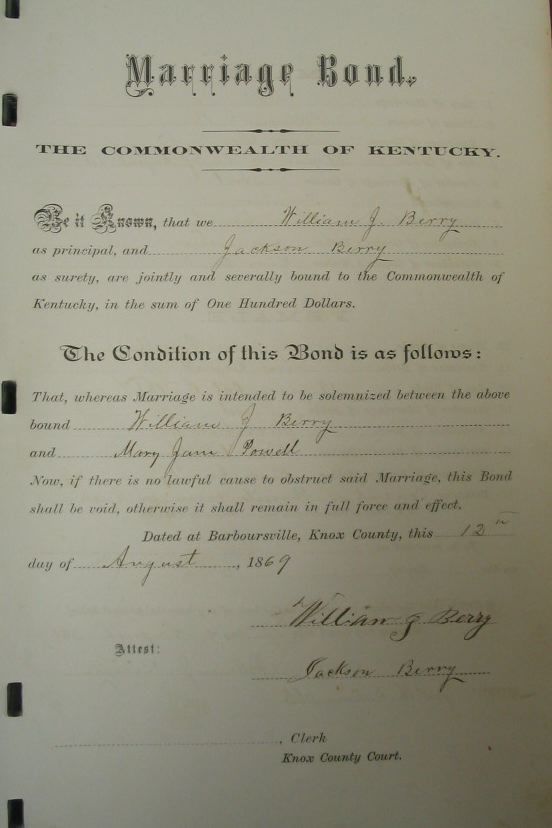 Marriage Bond.
THE COMMONWEALTH OF KENTUCKY.
Be it Known, that we William J. Berry
as principal, and Jackson Berry
as surety, are jointly and severally bound to the Commonwealth of
Kentucky, in the sum of One Hundred Dollars.
The Condition of this Bond is as follows:
That, whereas Marriage is intended to be solemnized between the above
bound William J Berry
and Mary Jane Powell
Now, if there is no lawful cause to obstruct said Marriage, this Bond
shall be void, otherwise it shall remain in full force and effect.
Dated at Barboursville, Knox County, this 12th
day of August, 1869
William J Berry
Attest:
Jackson Berry
, Clerk
Knox County Court.